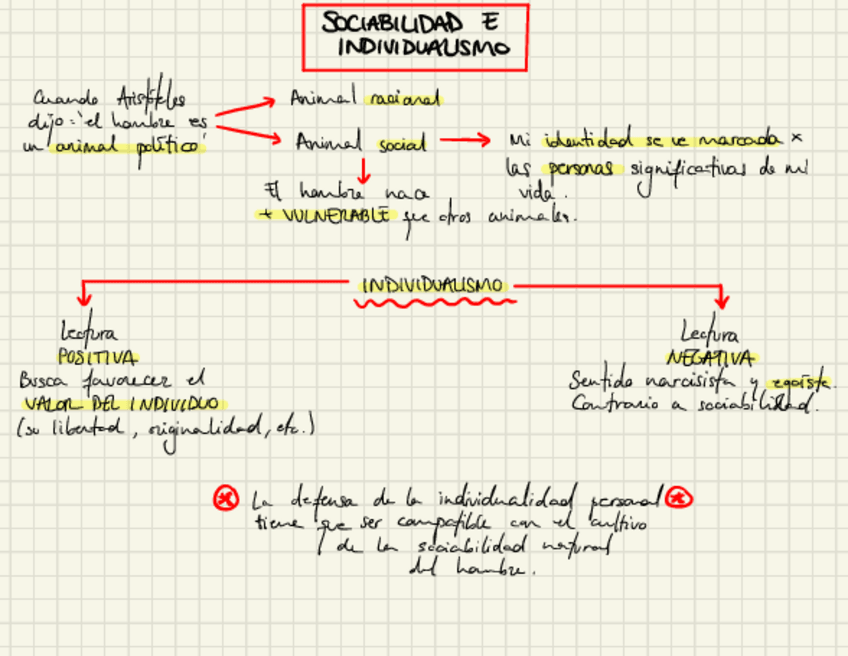 SOCIABILIDAD E
INDIVIDUALISMO
Cuando Aristóteles
dijo: "el hombre es
un animal político"
Animal racional
Animal social
Mi identidad se ve marcada x
las personas significativas de mi
vida.
El hombre nace
+ VULNERABLE que otros animales.
INDIVIDUALISMO
Lectura
POSITIVA
Busca favorecer el
VALOR DEL INDIVIDUO
(su libertad, originalidad, etc.)
Lectura
NEGATIVA
Sentido narcisista y egoísta.
Contrario a sociabilidad.
* La defensa de la individualidad personal *
tiene que ser compatible con el cultivo
de la sociabilidad natural
del hombre.